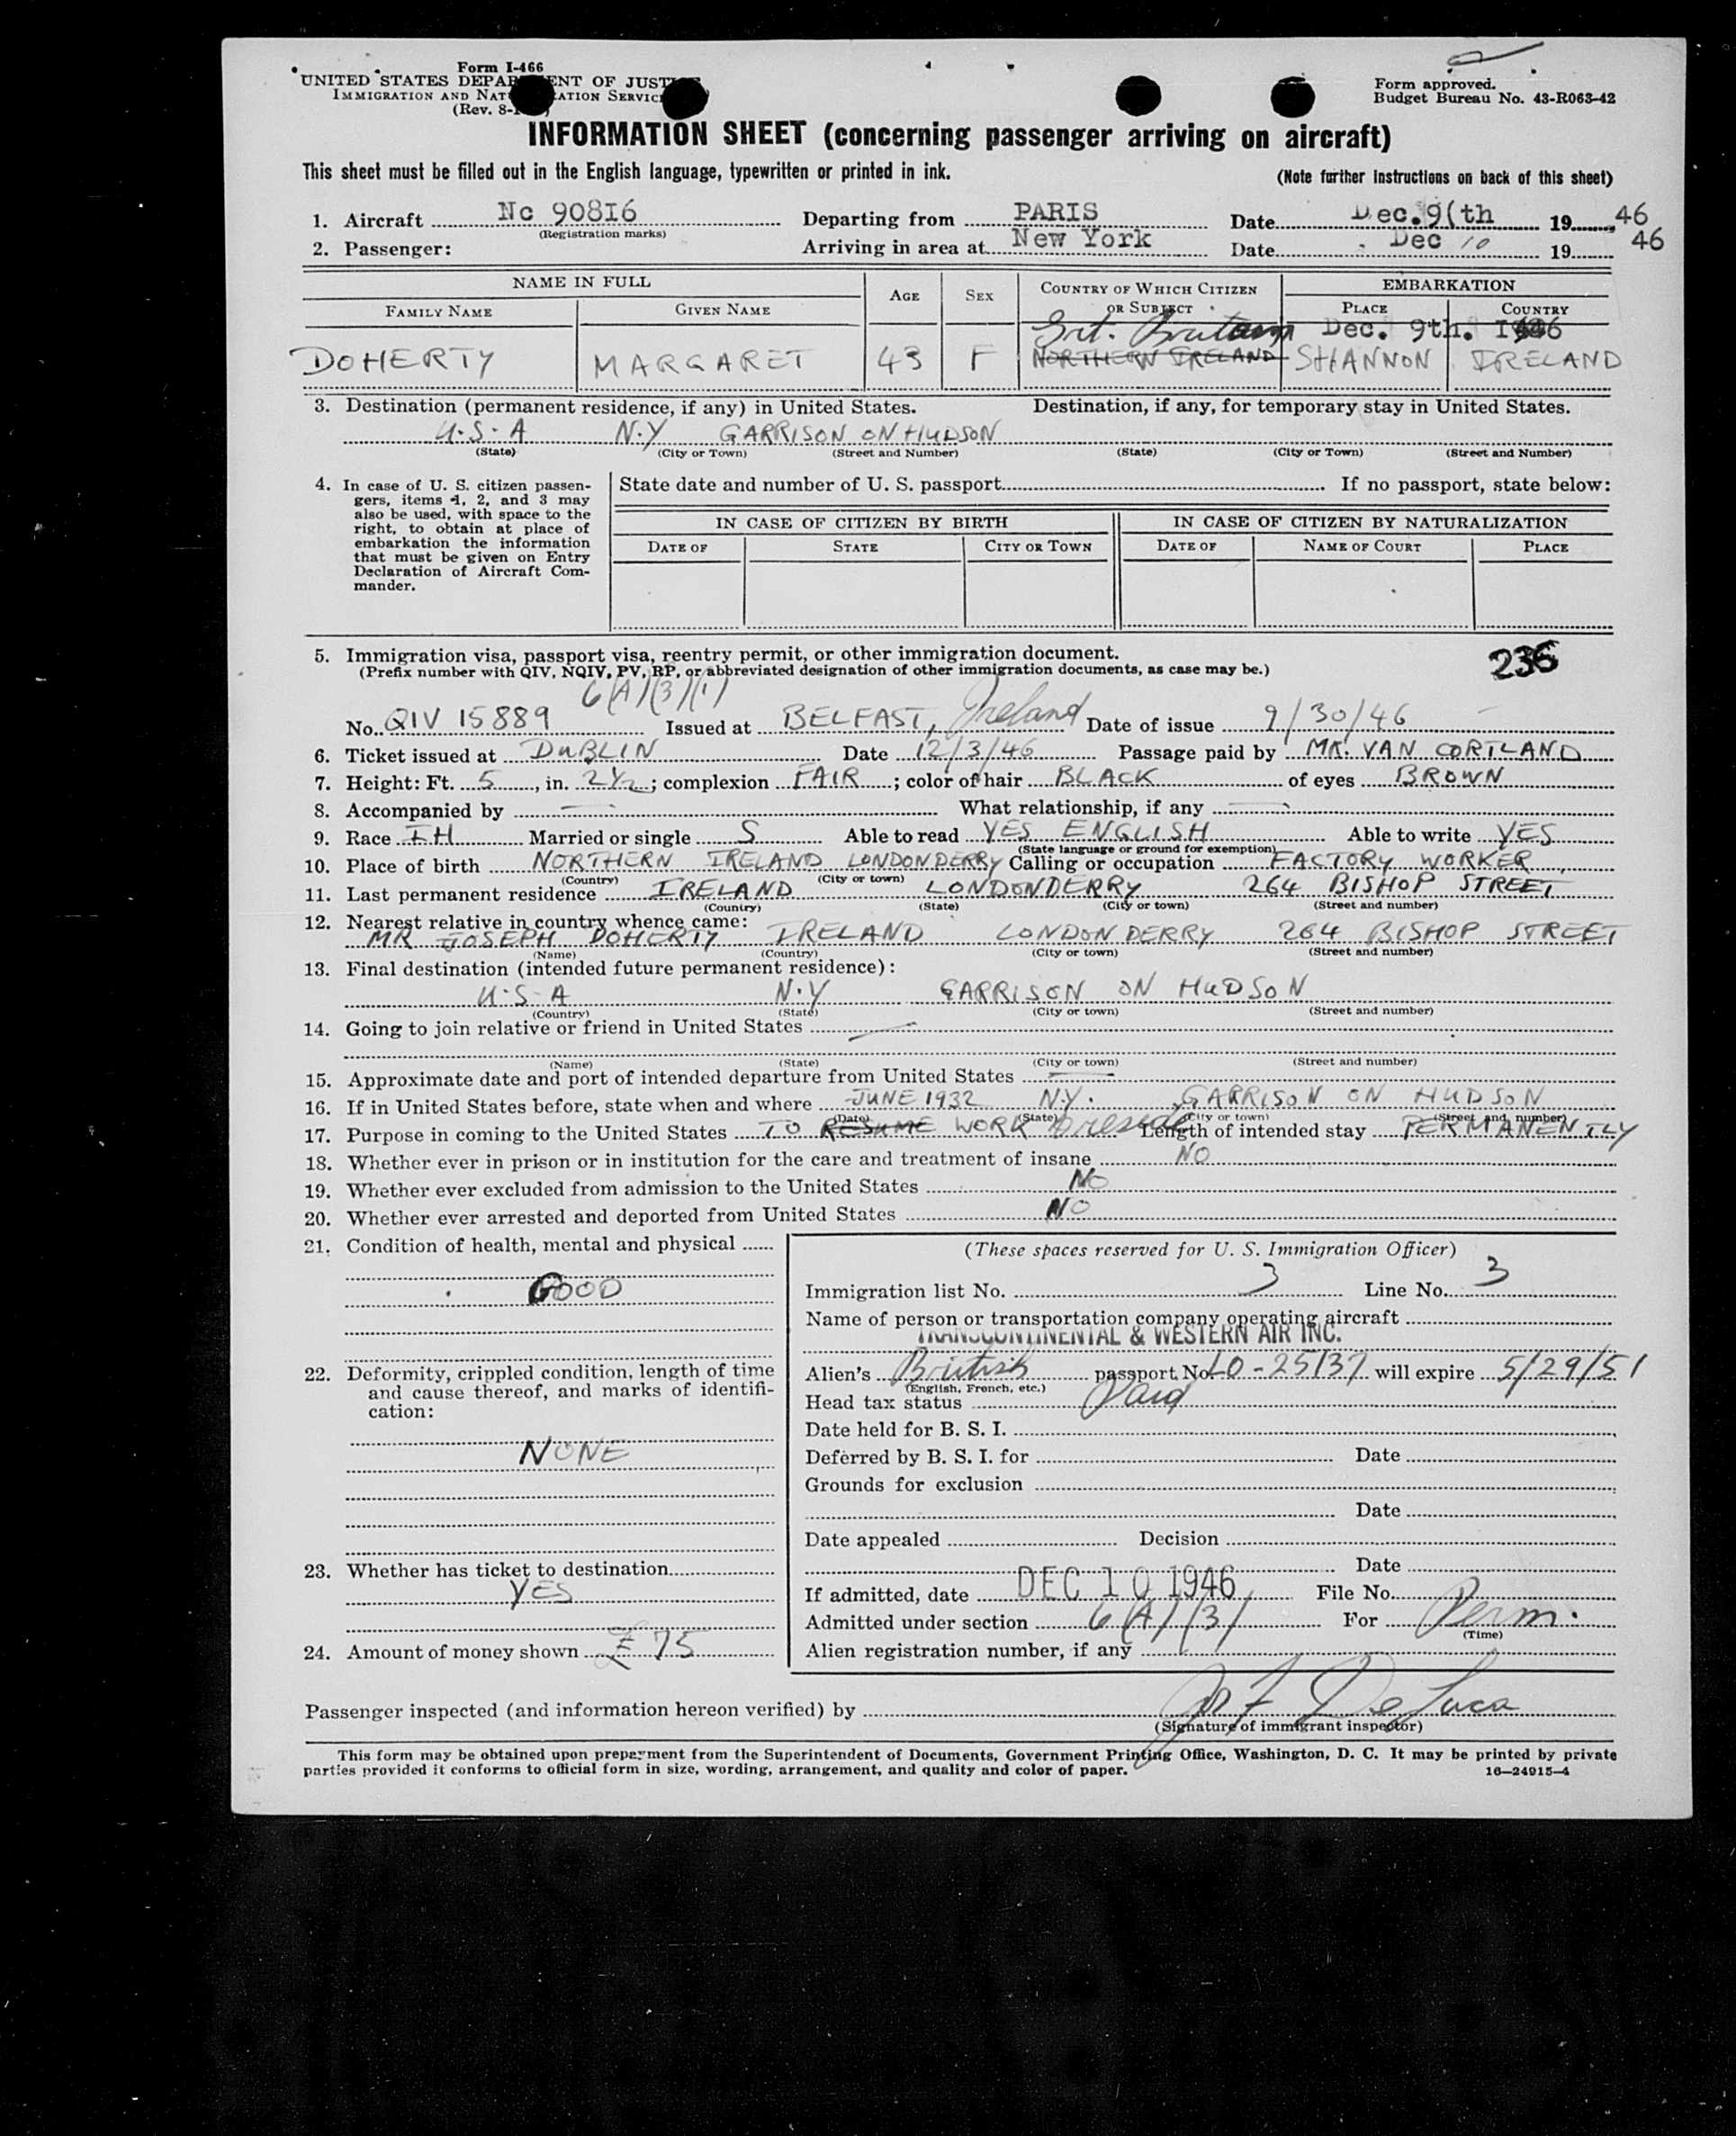 Form I-466
UNITED STATES DEPAR ENT OF JUST
IMMIGRATION AND NAT ATION SERVIC
(Rev. 8-
Form approved.
Budget Bureau No. 43-R063-42
INFORMATION SHEET (concerning passenger arriving on aircraft)
This sheet must be filled out in the English language, typewritten or printed in ink.
(Note further instructions on back of this sheet)
1. Aircraft Nc 908I6 Departing from PARIS Date Dec.9(th 19 46
(Registration marks)
2. Passenger: Arriving in area at New York Date Dec 10 19 46
NAME IN FULL AGE SEX COUNTRY OF WHICH CITIZEN OR SUBJECT EMBARKATION
FAMILY NAME GIVEN NAME PLACE COUNTRY
Grt. Britain Dec. 9th. I946
DOHERTY MARGARET 43 F NORTHERN IRELAND SHANNON IRELAND
3. Destination (permanent residence, if any) in United States. Destination, if any, for temporary stay in United States.
U.S.A N.Y GARRISON ON HUDSON
(State) (City or Town) (Street and Number) (State) (City or Town) (Street and Number)
4. In case of U. S. citizen passen-
gers, items 1, 2, and 3 may
also be used, with space to the
right, to obtain at place of
embarkation the information
that must be given on Entry
Declaration of Aircraft Com-
mander.
State date and number of U. S. passport If no passport, state below:
IN CASE OF CITIZEN BY BIRTH IN CASE OF CITIZEN BY NATURALIZATION
DATE OF STATE CITY OR TOWN DATE OF NAME OF COURT PLACE
5. Immigration visa, passport visa, reentry permit, or other immigration document.
236
(Prefix number with QIV, NQIV, PV, RP, or abbreviated designation of other immigration documents, as case may be.)
6(A)(3)(1)
No. QIV 15889 Issued at BELFAST, Ireland Date of issue 9/30/46
6. Ticket issued at DUBLIN Date 12/3/46 Passage paid by MR. VAN CORTLAND
7. Height: Ft. 5, in. 2 1/2; complexion FAIR; color of hair BLACK of eyes BROWN
8. Accompanied by — What relationship, if any —
9. Race IH Married or single S Able to read YES ENGLISH Able to write YES
(State language or ground for exemption)
10. Place of birth NORTHERN IRELAND LONDONDERRY Calling or occupation FACTORY WORKER
(Country) (City or town)
11. Last permanent residence IRELAND LONDONDERRY 264 BISHOP STREET
(Country) (State) (City or town) (Street and number)
12. Nearest relative in country whence came:
MR JOSEPH DOHERTY IRELAND LONDONDERRY 264 BISHOP STREET
(Name) (Country) (City or town) (Street and number)
13. Final destination (intended future permanent residence):
U.S.A N.Y GARRISON ON HUDSON
(Country) (State) (City or town) (Street and number)
14. Going to join relative or friend in United States —
(Name) (State) (City or town) (Street and number)
15. Approximate date and port of intended departure from United States —
16. If in United States before, state when and where JUNE 1932 N.Y. GARRISON ON HUDSON
(Date) (State) (City or town) (Street and number)
17. Purpose in coming to the United States TO RESUME WORK & reside Length of intended stay PERMANENTLY
18. Whether ever in prison or in institution for the care and treatment of insane NO
19. Whether ever excluded from admission to the United States NO
20. Whether ever arrested and deported from United States NO
21. Condition of health, mental and physical
GOOD
22. Deformity, crippled condition, length of time
and cause thereof, and marks of identifi-
cation:
NONE
23. Whether has ticket to destination
YES
24. Amount of money shown £75
(These spaces reserved for U. S. Immigration Officer)
Immigration list No. 3 Line No. 3
Name of person or transportation company operating aircraft
TRANSCONTINENTAL & WESTERN AIR INC.
Alien's British passport No. LO-25137 will expire 5/29/51
(English, French, etc.)
Head tax status Paid
Date held for B. S. I.
Deferred by B. S. I. for Date
Grounds for exclusion
Date
Date appealed Decision
Date
If admitted, date DEC 10 1946 File No.
Admitted under section 6(A)(3) For Perm.
(Time)
Alien registration number, if any
Passenger inspected (and information hereon verified) by De Luca
(Signature of immigrant inspector)
This form may be obtained upon prepayment from the Superintendent of Documents, Government Printing Office, Washington, D. C. It may be printed by private
parties provided it conforms to official form in size, wording, arrangement, and quality and color of paper.
16—24915-4